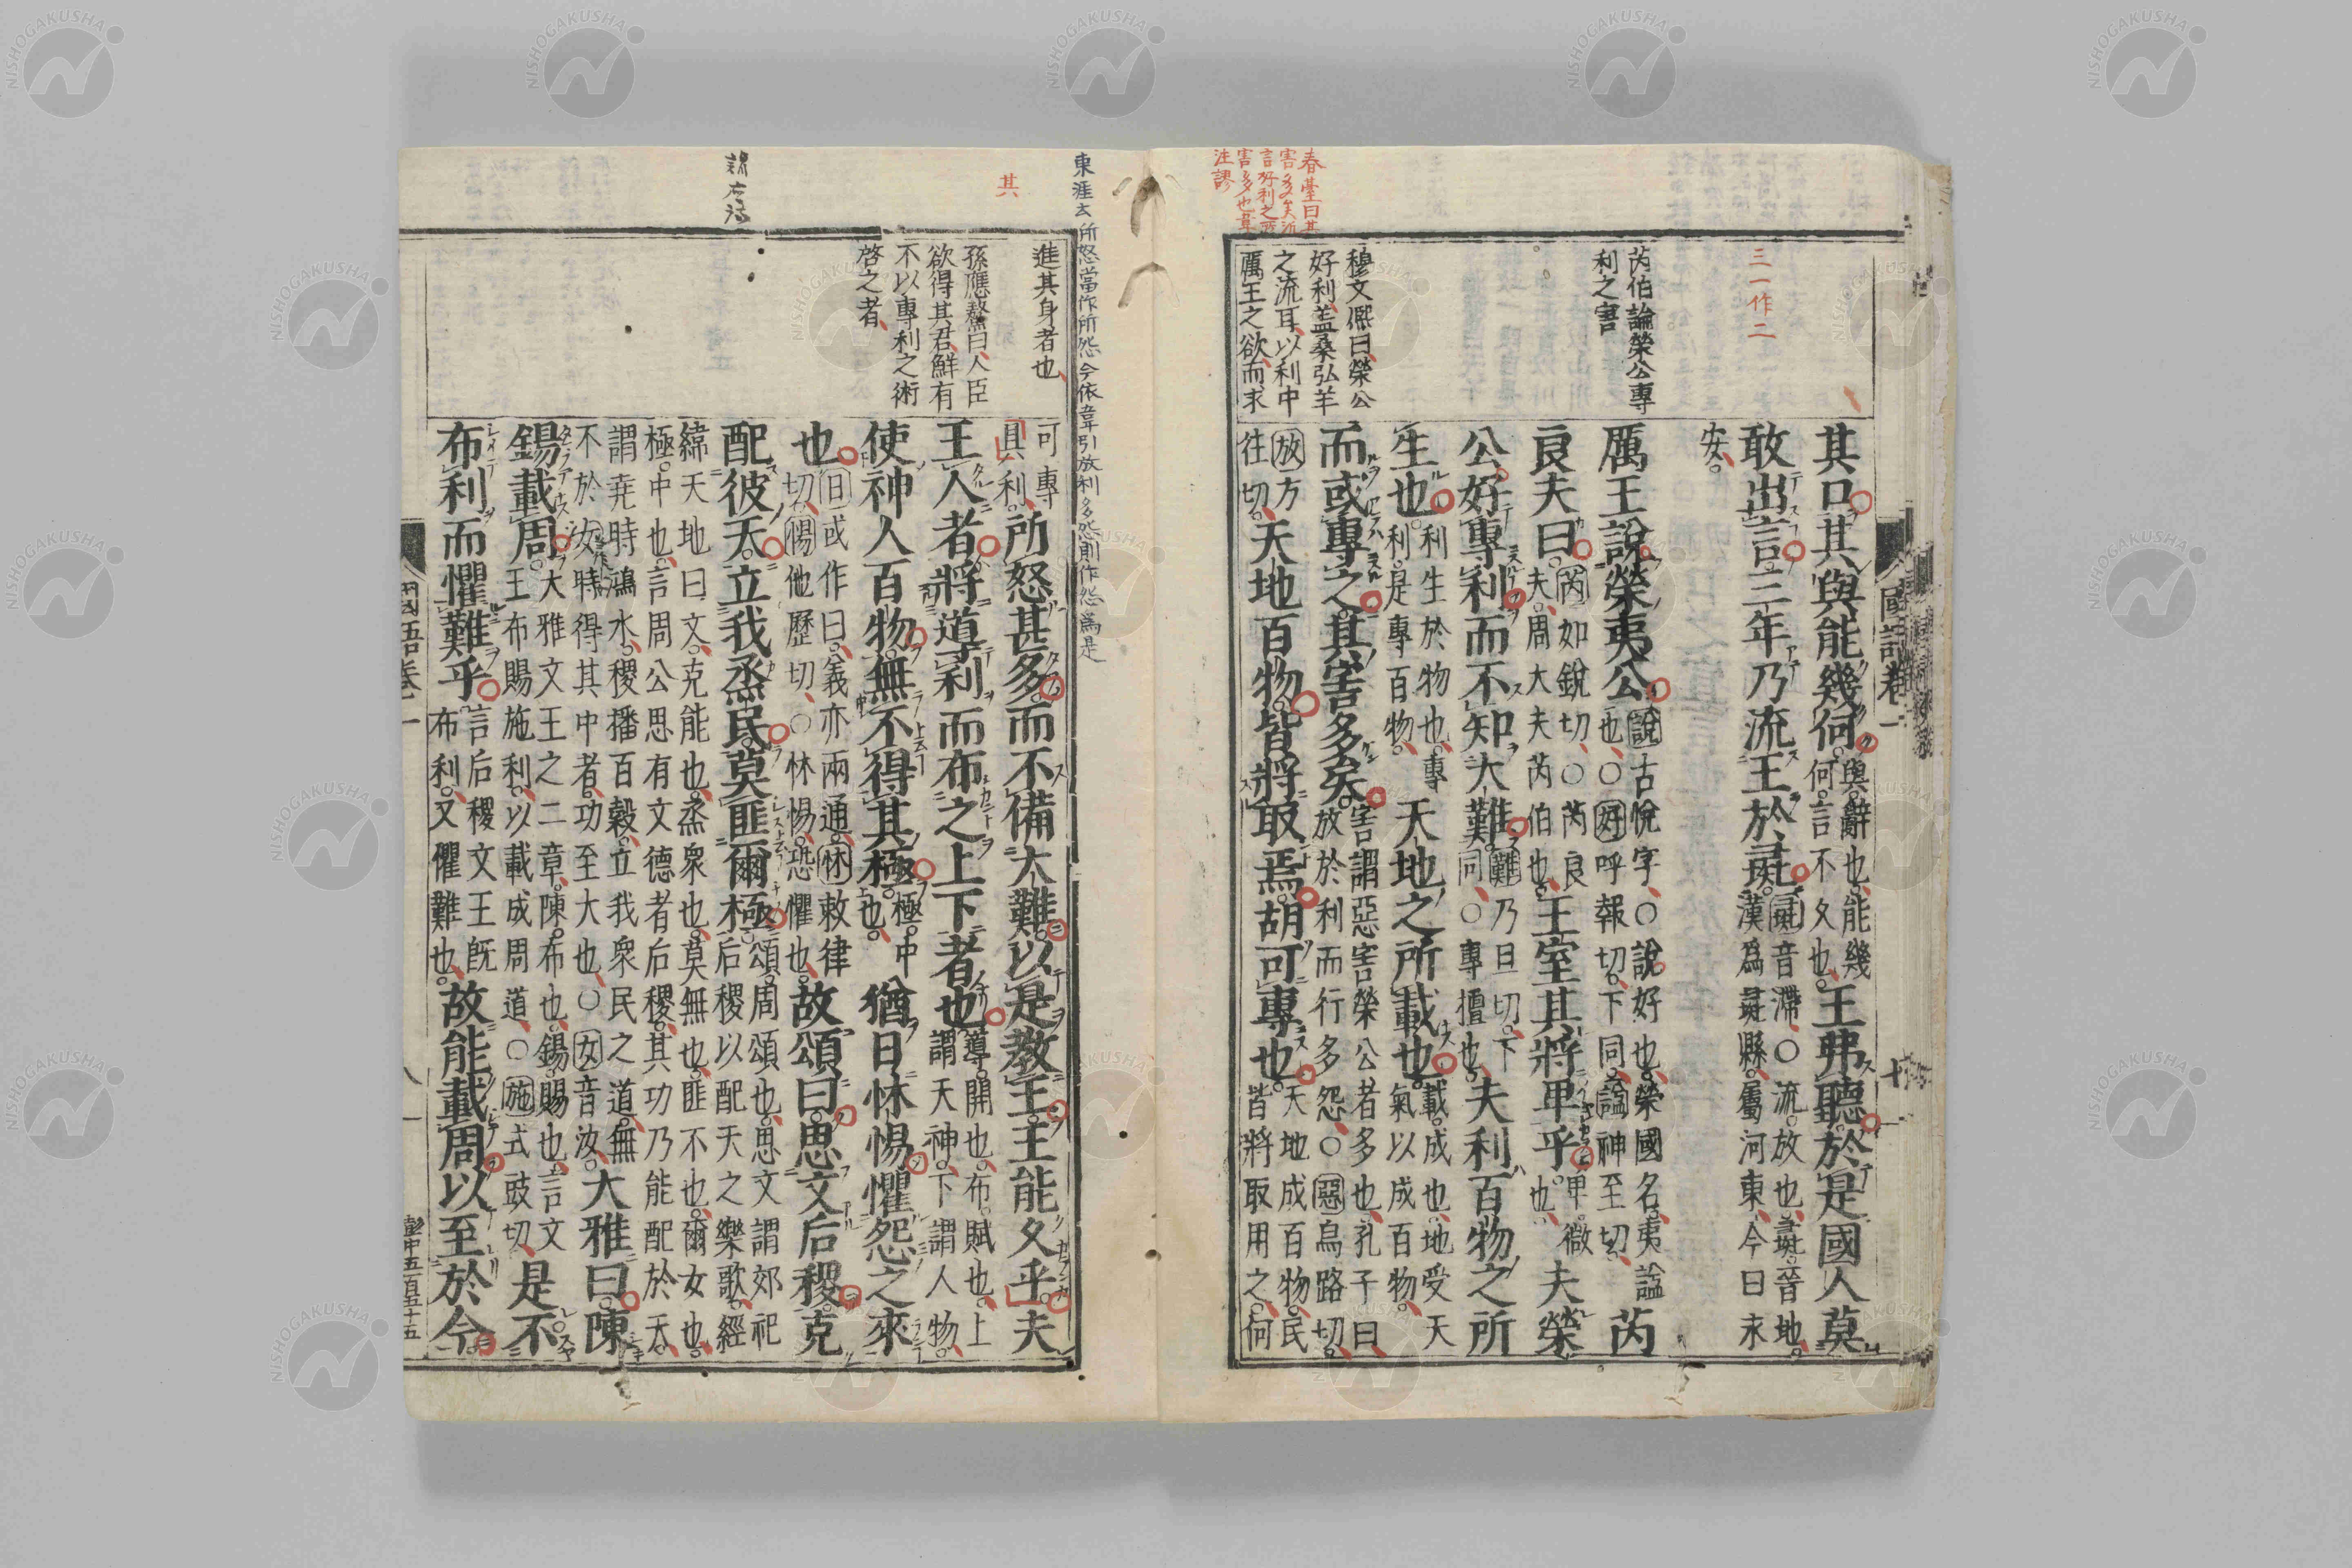 春臺曰其
害多矣所
言好利之所
害多也韋
注謬
三一作二
芮伯論榮公專
利之害
穆文熈曰榮公
好利、蓋桑弘羊
之流耳、以利中
厲王之欲、而求
國語卷一
十一
其口。其與能幾何。
與。辭也。能幾
何。言不久也。
王弗聽。於是國人莫
敢出言。三年乃流王於彘。
彘音滯、〇流。放也。彘。晉地。
漢爲彘縣。屬河東。今曰永
安。
厲王說榮夷公。
說古悅字、〇說。好也。榮國名。夷謚
也、〇好呼報切、下同、謚神至切、
芮
良夫曰。
芮如銳切、〇芮良
夫。周大夫芮伯也。
王室其將卑乎。
卑。微
也。
夫榮
公好專利而不知大難。
難乃旦切、下
同、〇專。擅也。
夫利百物之所
生也。
利生於物也。專
利。是專百物。
天地之所載也。
載。成也。地受天
氣以成百物。
而或專之。其害多矣。
害謂惡害榮公者多也。孔子曰、
放於利而行多怨。〇惡烏路切、
放方
往切。
天地百物。皆將取焉。胡可專也。
天地成百物。民
皆將取用之。何
東涯云所怒當作所怨今依韋引放利多怨則作怨爲是
其
進其身者也、
孫應鰲曰、人臣
欲得其君、鮮有
不以專利之術
啓之者、
可專
其利。
所怒甚多。而不備大難。以是教王。王能久乎。夫
王人者。將導利而布之上下者也。
導。開也。布。賦也。上
謂天神。下謂人物。
使神人百物。無不得其極。
極。中
也。
猶日怵惕懼怨之來
也。
日或作曰。義亦兩通、怵敕律
切、惕他歷切、〇怵惕。恐懼也。
故頌曰。思文后稷。克
配彼天。立我烝民。莫匪爾極。
頌。周頌也。思文謂郊祀
后稷以配天之樂歌。經
緯天地曰文。克能也。烝衆也。莫無也。匪不也。爾女也。
極。中也。言周公思有文德者后稷。其功乃能配於天。
謂堯時鴻水。稷播百穀。立我衆民之道。無
不於女時得其中者。功至大也、〇女音汝、
大雅曰。陳
錫載周。
大雅文王之二章。陳。布也。錫。賜也。言文
王布賜施利。以載成周道、〇施式豉切、
是不
布利而懼難乎。
言后稷文王旣
布利。又懼難也。
故能載周。以至於今。